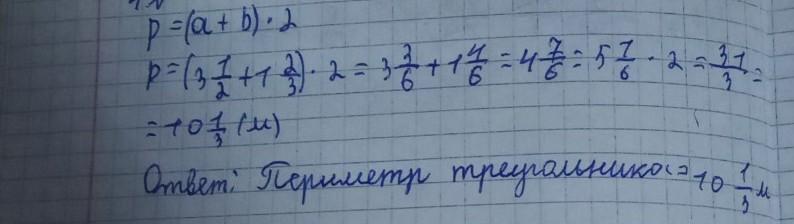 p=(a+b)·2
p=(3 1/2+1 2/3)·2=3 3/6+1 4/6=4 7/6=5 1/6·2=31/3=
=10 1/3 (м)
Ответ: Периметр треугольника = 10 1/3 м